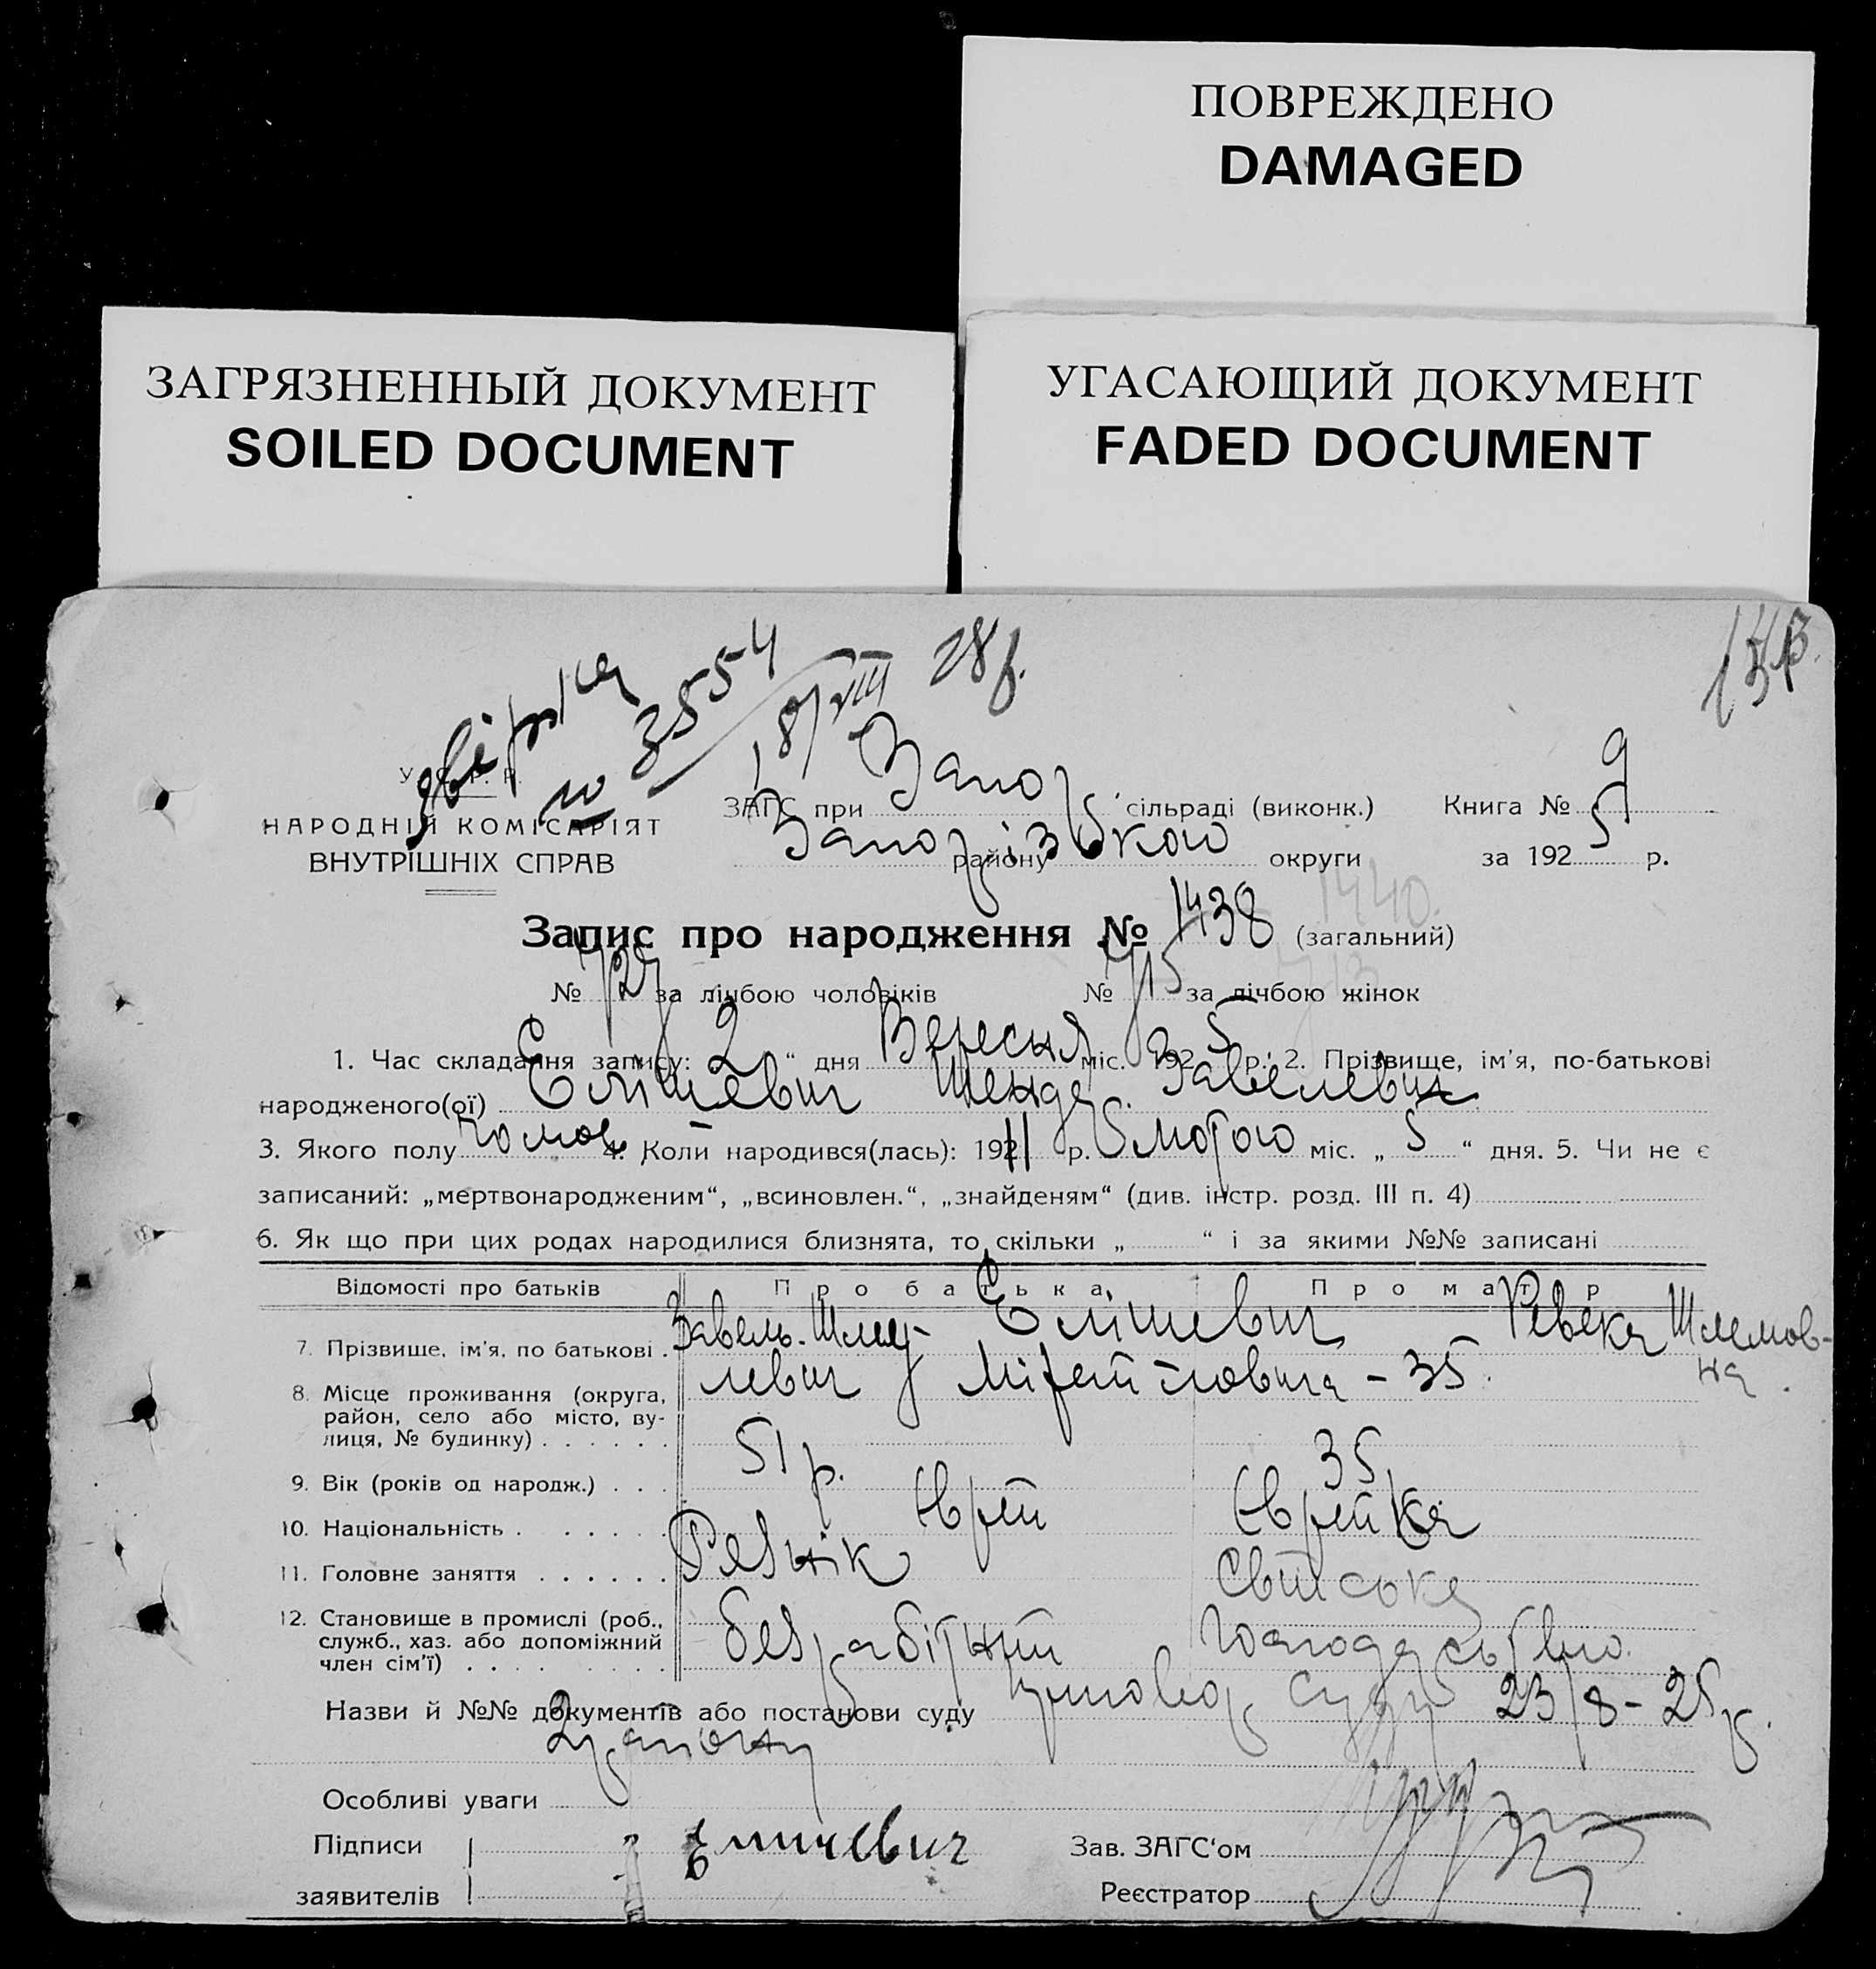 ПОВРЕЖДЕНО
DAMAGED
ЗАГРЯЗНЕННЫЙ ДОКУМЕНТ
SOILED DOCUMENT
УГАСАЮЩИЙ ДОКУМЕНТ
FADED DOCUMENT
№ 3554
18/VIII 28р.
У. С. Р. Р.
НАРОДНІЙ КОМІСАРІЯТ
ВНУТРІШНІХ СПРАВ
ЗАГС при Запор сільраді (виконк.) Книга № 9
Запорізького району округи за 1925 р.
Запис про народження № 1438 (загальний) 1440.
№ за лічбою чоловіків № 715 за лічбою жінок 713
1. Час складання запису: „2“ дня Вересня міс. 1925 р. 2. Прізвище, ім'я, по-батькові
народженого(ої) Елішевич Шендер Завелевич
3. Якого полу чолов 4. Коли народився(лась): 1911 р. Лютою міс. „5“ дня. 5. Чи не є
записаний: „мертвонародженим“, „всиновлен.“, „знайденям“ (див. інстр. розд. III п. 4)
6. Як що при цих родах народилися близнята, то скільки „ “ і за якими №№ записані
Відомості про батьків Про батька Про матір
7. Прізвище, ім'я, по батькові . Завель-Шму- Елішевич Ревека Шлемов-
левич на
8. Місце проживання (округа,
район, село або місто, ву-
лиця, № будинку) . . . . . . – 35
9. Вік (років од народж.) . . . 51 р. 35
10. Національність . . . . . . Єврей Єврейка
11. Головне заняття . . . . . . Резнік Свійське
12. Становище в промислі (роб.,
служб., хаз. або допоміжний
член сім'ї) . . . . . . . . . безрабітний господарство.
Назви й №№ документів або постанови суду суду 23/8 – 25р.
Особливі уваги
Підписи Елишевич Зав. ЗАГС'ом
заявителів Реєстратор